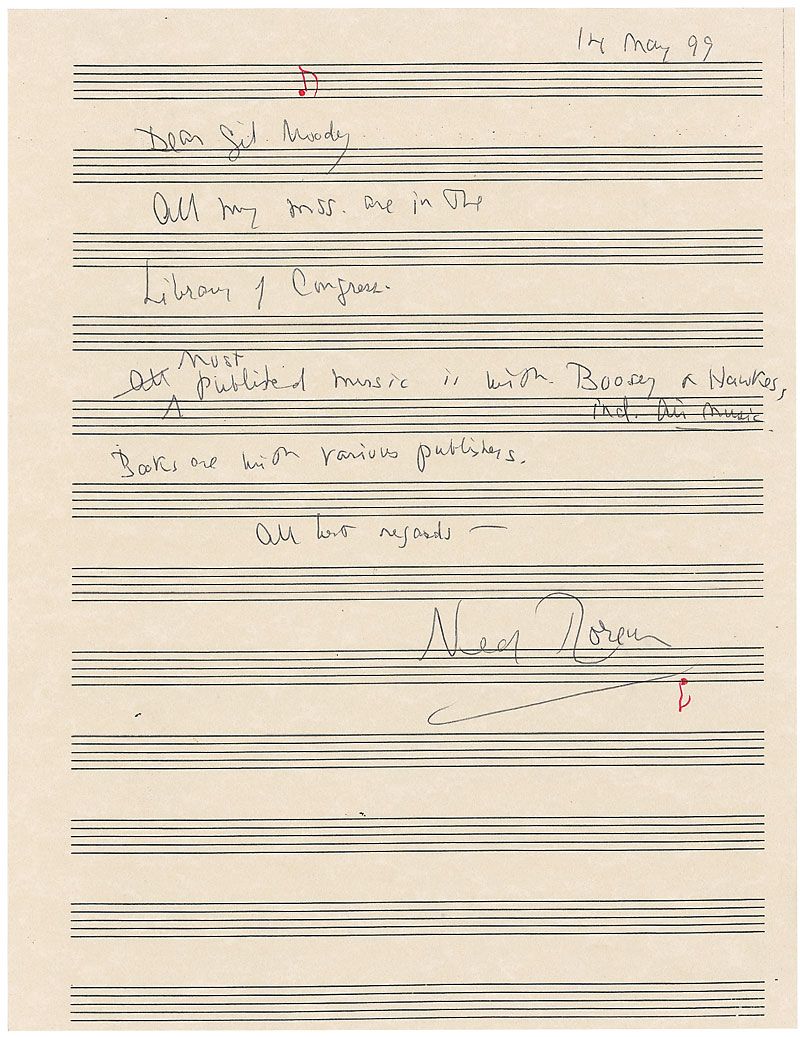 14 May 99
Dear Gil Moody
All my mss. are in the
Library of Congress.
All Most published music is with Boosey & Hawkes,
incl. Air Music.
Books are with various publishers.
All best regards —
Ned Rorem